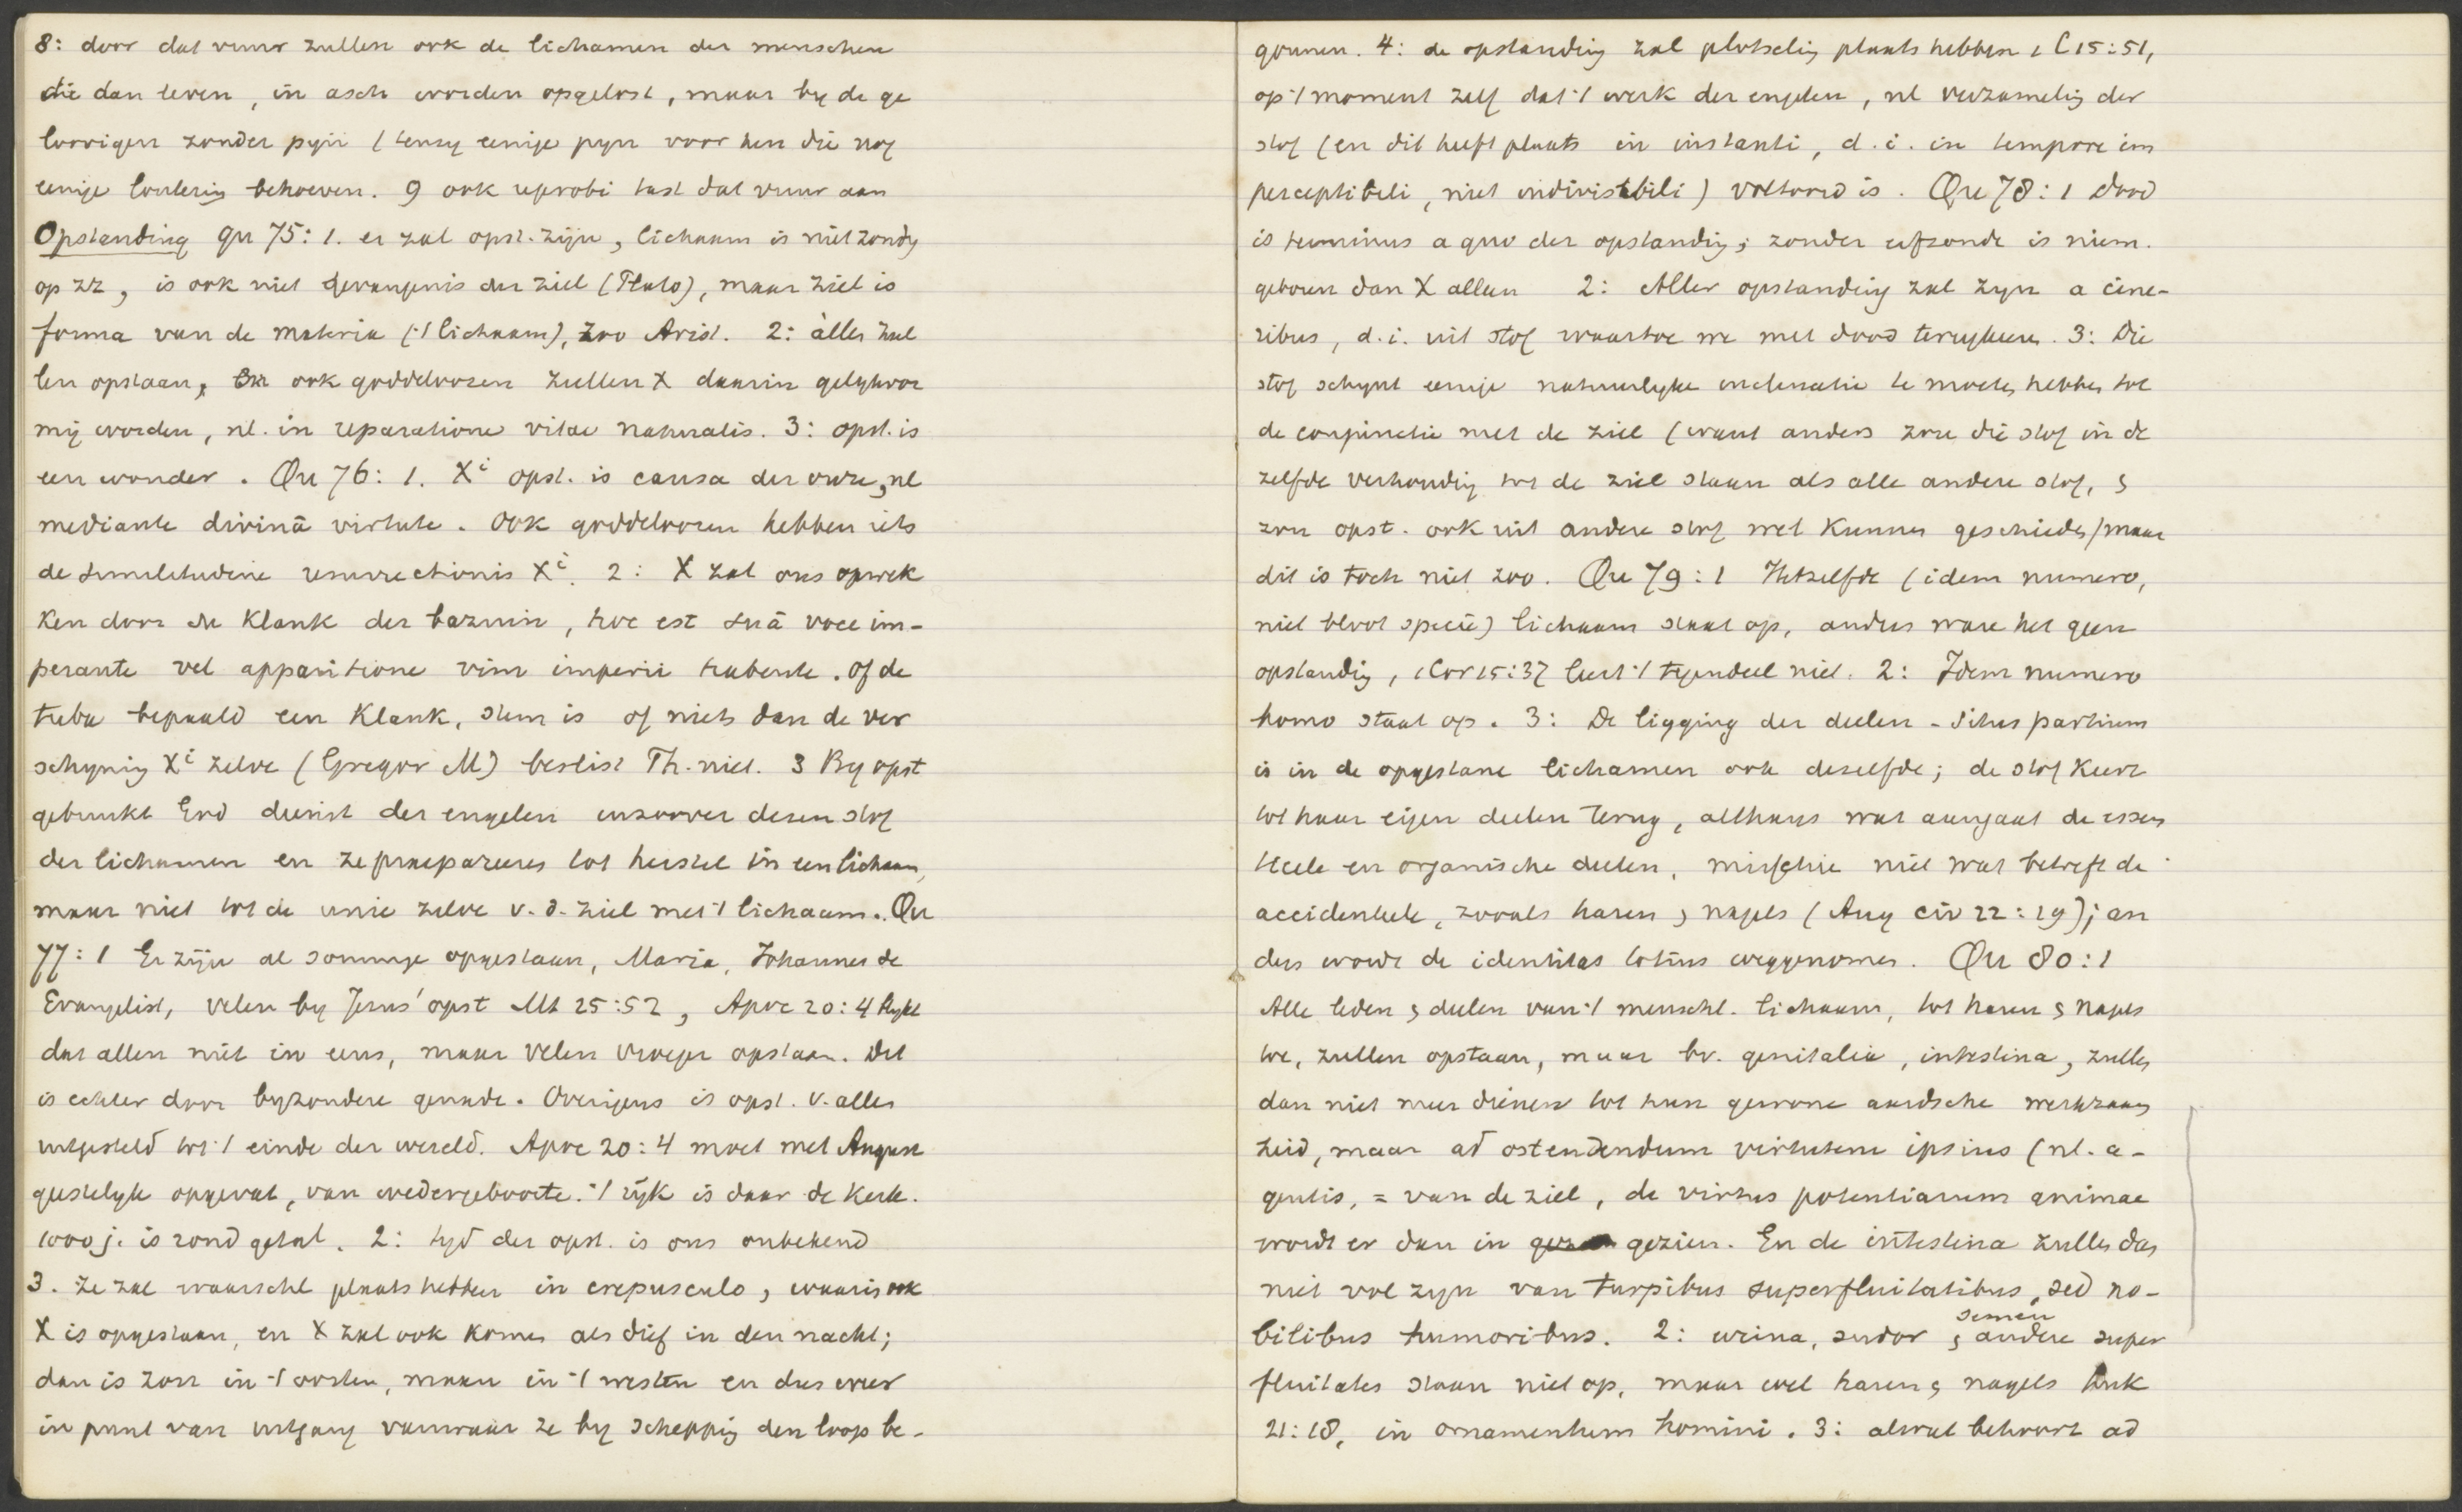 8: door dat vuur zullen ook de lichamen der menschen
die dan leven, in asch worden opgelost, maar by de ge
loovigen zonder pyn (tenzy eenige pyn voor hen die nog
eenige loutering behoeven. 9 ook reprobi tast dat vuur aan
Opstanding qu 75: 1. er zal opst. zijn, lichaam is niet zondig
op zz, is ook niet gevangenis der ziel (Plato), maar ziel is
forma van de materia ('t lichaam), zoo Arist. 2: allen zul
len opstaan, ook goddeloozen zullen X daarin gelykvor
mig worden, nl. in reparatione vitae naturalis. 3: opst. is
een wonder. Qu 76: 1. Xi opst. is causa der onze, nl
mediante divinâ virtute. Ook goddeloozen hebben iets
de similitudine resurrectionis Xi. 2: X zal ons opwek
ken door den klank der bazuin, hoc est suâ voce im-
perante vel apparitione vim imperii habente. Of de
tuba bepaald een klank, stem is of niets dan de ver
schyning Xi zelve (Gregor M) beslist Th. niet. 3 By opst
gebruikt God dienst der engelen inzoover dezen stof
der lichamen en ze praepareeren tot herstel in een lichaam,
maar niet tot de unie zelve v. d. ziel met 't lichaam. Qu
77: 1 Er zijn al sommige opgestaan, Maria, Johannes de
Evangelist, velen by Jezus' opst Mt 25:52, Apoc 20:4 blykt
dat allen niet in eens, maar velen vroeger opstaan. Dit
is echter door byzondere genade. Overigens is opst. v. allen
uitgesteld tot 't einde der wereld. Apoc 20:4 moet met August
geestelyk opgevat, van wedergeboorte. 't ryk is daar de Kerk.
1000 j. is rond getal. 2: tyd der opst. is ons onbekend
3. Ze zal waarschl plaats hebben in crepusculo, waarin ook
X is opgestaan, en X zal ook komen als dief in den nacht;
dan is zon in 't oosten, maan in 't westen en dus weer
in punt van uitgang vanwaar ze by schepping den loop be-
gonnen. 4: de opstanding zal plotseling plaats hebben 1 C 15:51,
op 't moment zelf dat 't werk der engelen, nl verzameling der
stof (en dit heeft plaats in instanti, d. i. in tempore im
perceptibeli, niet indivisibili) voltooid is. Qu 78: 1 dood
is terminus a quo der opstanding; zonder erfzonde is niem.
geboren dan X alleen 2: Aller opstanding zal zyn a cine-
ribus, d. i. uit stof waartoe we met dood terugkeeren. 3: Die
stof schynt eenige natuurlyke inclinatie te moeten hebben tot
de conjunctie met de ziel (want anders zou die stof in de
zelfde verhouding tot de ziel staan als alle andere stof, &
zou opst. ook uit andere stof wel kunnen geschieden) maar
dit is toch niet zoo. Qu 79: 1 Hetzelfde (idem numero,
niet bloot specie) lichaam staat op, anders ware het geen
opstanding, 1 Cor 15:37 leert 't tegendeel niet. 2: Idem numero
homo staat op. 3: De ligging der deelen - situs partium
is in de opgestane lichamen ook dezelfde; de stof keert
tot haar eigen deelen terug, althans wat aangaat de essen
tieele en organische deelen, misschien niet wat betreft de
accidenteele, zooals haren & nagels (Aug civ 22:19); an
ders wordt de identitas totius weggenomen. Qu 80: 1
Alle leden & deelen van 't menschl. lichaam, tot haren & nagels
toe, zullen opstaan, maar bv. genitalia, intestina, zullen
dan niet meer dienen tot hun gewone aardsche werkzaam
heid, maar ad ostendendum virtutem ipsius (nl. a-
gentis, = van de ziel, de virtus potentiarum animae
wordt er dan in gezien. En de intestina zullen dan
niet vol zyn van turpibus superfluitatibus, sed no-
bilibus humoribus. 2: urina, sudor, semen & andere super
fluitates staan niet op, maar wel haren & nagels Luk
21:18, in ornamentum homini. 3: alwat behoort ad